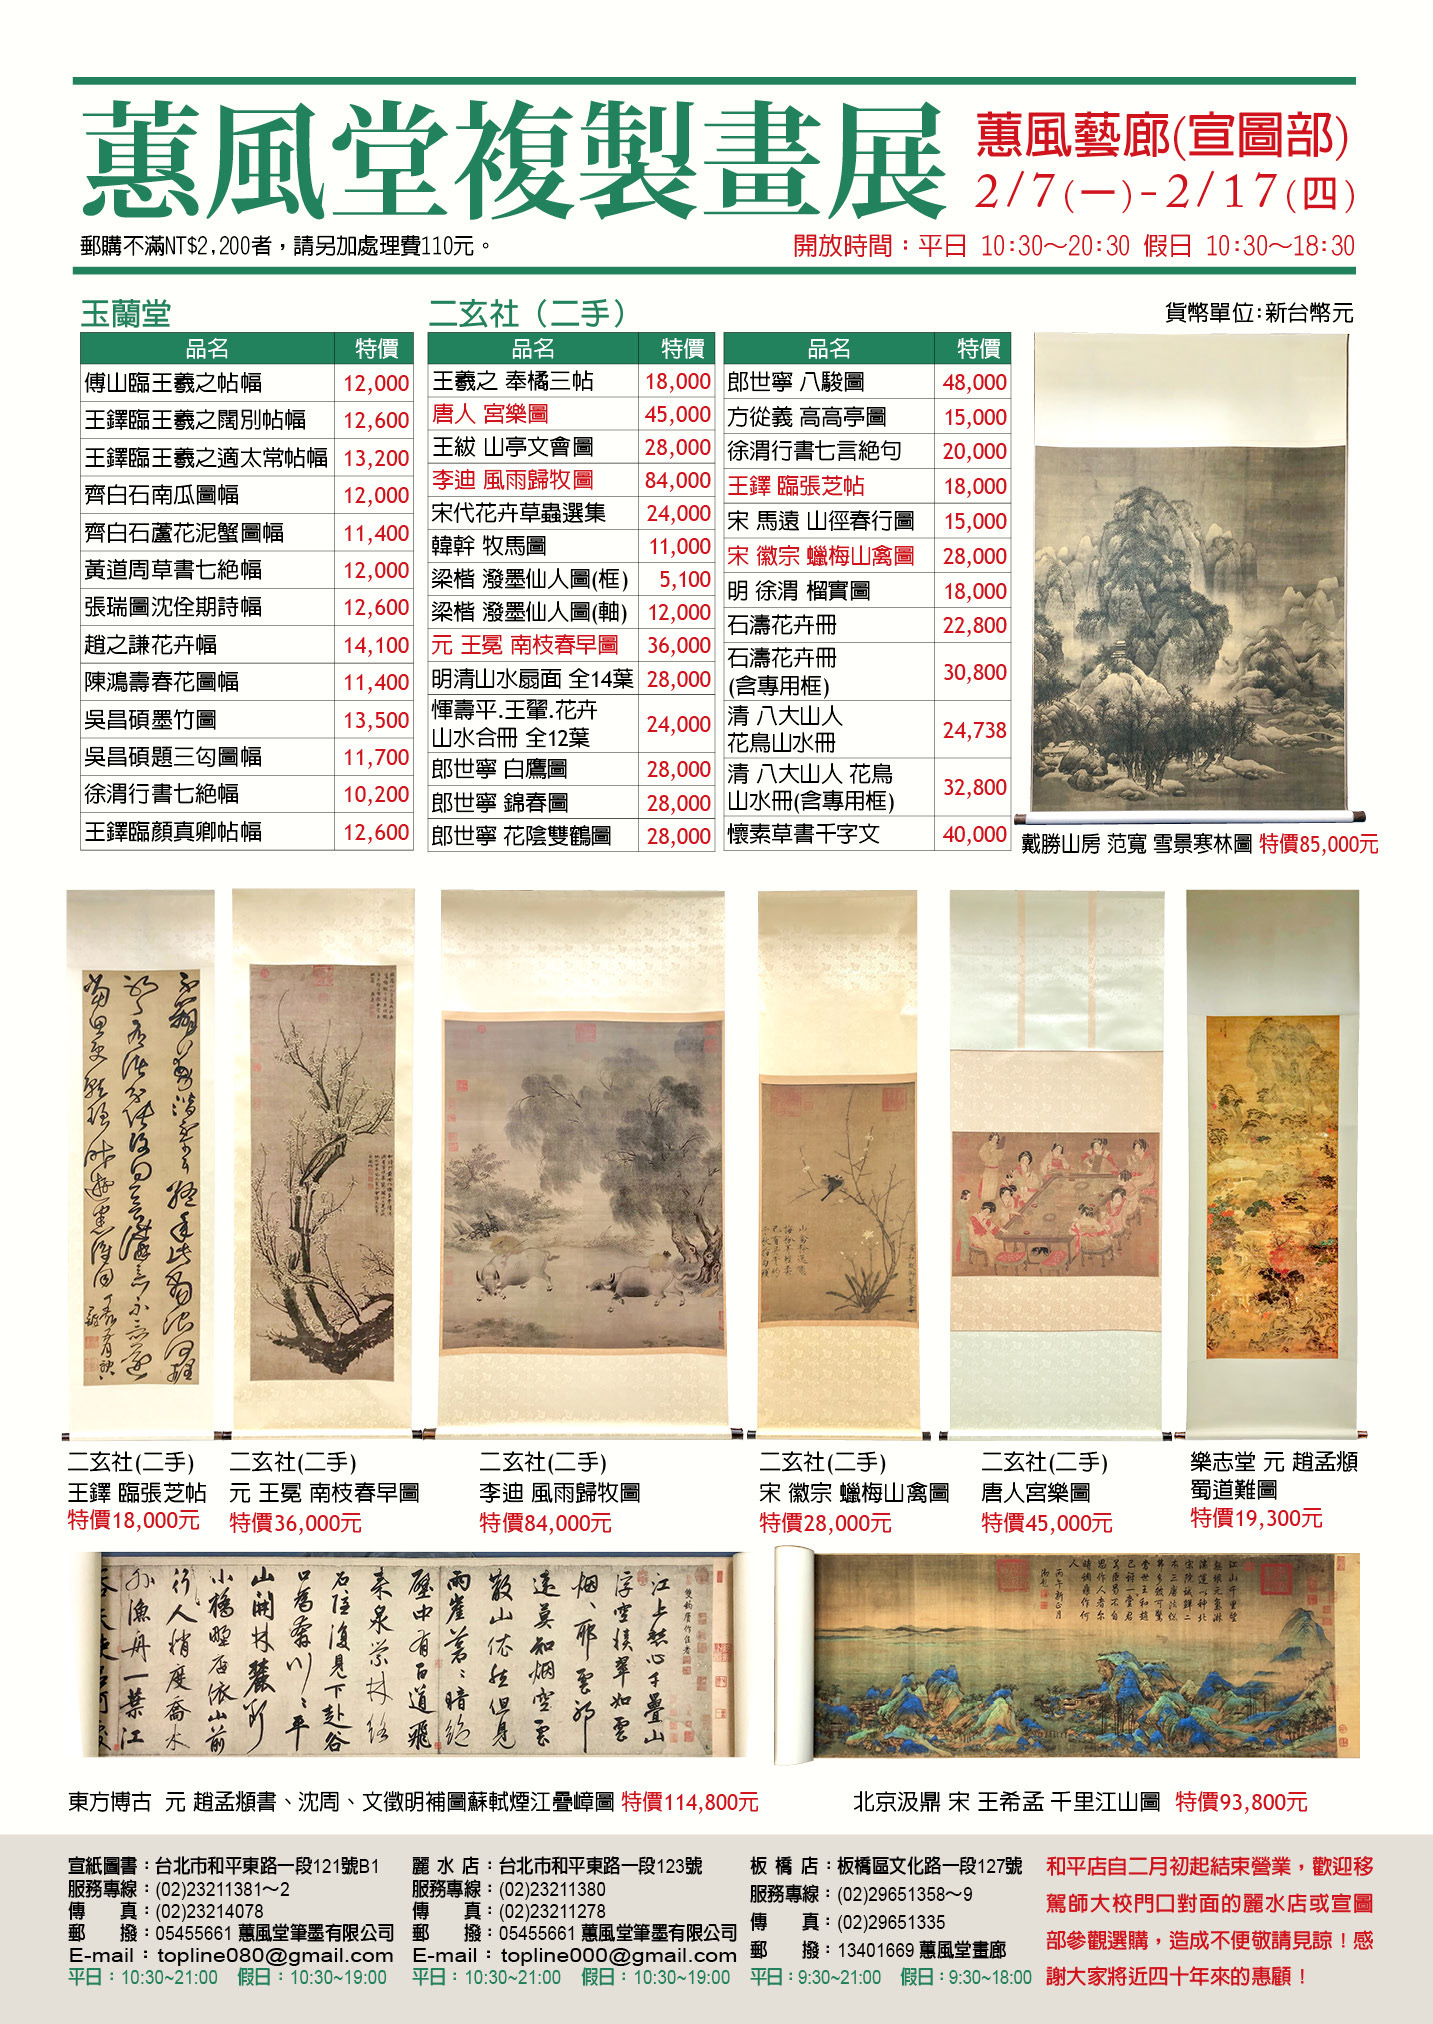 蕙風堂複製畫展
蕙風藝廊(宣圖部)
2/7(一)-2/17(四)
郵購不滿NT$2,200者，請另加處理費110元。
開放時間：平日 10:30～20:30 假日 10:30～18:30
玉蘭堂
品名 特價
傅山臨王羲之帖幅 12,000
王鐸臨王羲之闊別帖幅 12,600
王鐸臨王羲之適太常帖幅 13,200
齊白石南瓜圖幅 12,000
齊白石蘆花泥蟹圖幅 11,400
黃道周草書七絕幅 12,000
張瑞圖沈佺期詩幅 12,600
趙之謙花卉幅 14,100
陳鴻壽春花圖幅 11,400
吳昌碩墨竹圖 13,500
吳昌碩題三匃圖幅 11,700
徐渭行書七絕幅 10,200
王鐸臨顏真卿帖幅 12,600
二玄社（二手）
品名 特價
王羲之 奉橘三帖 18,000
唐人 宮樂圖 45,000
王紱 山亭文會圖 28,000
李迪 風雨歸牧圖 84,000
宋代花卉草蟲選集 24,000
韓幹 牧馬圖 11,000
梁楷 潑墨仙人圖(框) 5,100
梁楷 潑墨仙人圖(軸) 12,000
元 王冕 南枝春早圖 36,000
明清山水扇面 全14葉 28,000
惲壽平.王翬.花卉
山水合冊 全12葉 24,000
郎世寧 白鷹圖 28,000
郎世寧 錦春圖 28,000
郎世寧 花陰雙鶴圖 28,000
品名 特價
郎世寧 八駿圖 48,000
方從義 高高亭圖 15,000
徐渭行書七言絕句 20,000
王鐸 臨張芝帖 18,000
宋 馬遠 山徑春行圖 15,000
宋 徽宗 蠟梅山禽圖 28,000
明 徐渭 榴實圖 18,000
石濤花卉冊 22,800
石濤花卉冊
(含專用框) 30,800
清 八大山人
花鳥山水冊 24,738
清 八大山人 花鳥
山水冊(含專用框) 32,800
懷素草書千字文 40,000
貨幣單位:新台幣元
戴勝山房 范寬 雪景寒林圖 特價85,000元
二玄社(二手)
王鐸 臨張芝帖
特價18,000元
二玄社(二手)
元 王冕 南枝春早圖
特價36,000元
二玄社(二手)
李迪 風雨歸牧圖
特價84,000元
二玄社(二手)
宋 徽宗 蠟梅山禽圖
特價28,000元
二玄社(二手)
唐人宮樂圖
特價45,000元
樂志堂 元 趙孟頫
蜀道難圖
特價19,300元
江上愁心千疊山
浮空積翠如雲
烟、耶雲邪
遠莫知烟空雲
散山依然但見
兩崖蒼〻暗絕
壁中有百道飛
來泉縈林絡
石隱復見下赴谷
口為奔川〻平
山開林麓斷
小橋野店依山前
行人稍度喬木
外漁舟一葉江
東方博古 元 趙孟頫書、沈周、文徵明補圖蘇軾煙江疊嶂圖 特價114,800元
北京汲鼎 宋 王希孟 千里江山圖 特價93,800元
宣紙圖書：台北市和平東路一段121號B1
服務專線：(02)23211381～2
傳 真：(02)23214078
郵 撥：05455661 蕙風堂筆墨有限公司
E-mail：topline080@gmail.com
平日：10:30~21:00 假日：10:30~19:00
麗水店：台北市和平東路一段123號
服務專線：(02)23211380
傳 真：(02)23211278
郵 撥：05455661 蕙風堂筆墨有限公司
E-mail：topline000@gmail.com
平日：10:30~21:00 假日：10:30~19:00
板橋店：板橋區文化路一段127號
服務專線：(02)29651358～9
傳 真：(02)29651335
郵 撥：13401669 蕙風堂畫廊
平日：9:30~21:00 假日：9:30~18:00
和平店自二月初起結束營業，歡迎移
駕師大校門口對面的麗水店或宣圖
部參觀選購，造成不便敬請見諒！感
謝大家將近四十年來的惠顧！